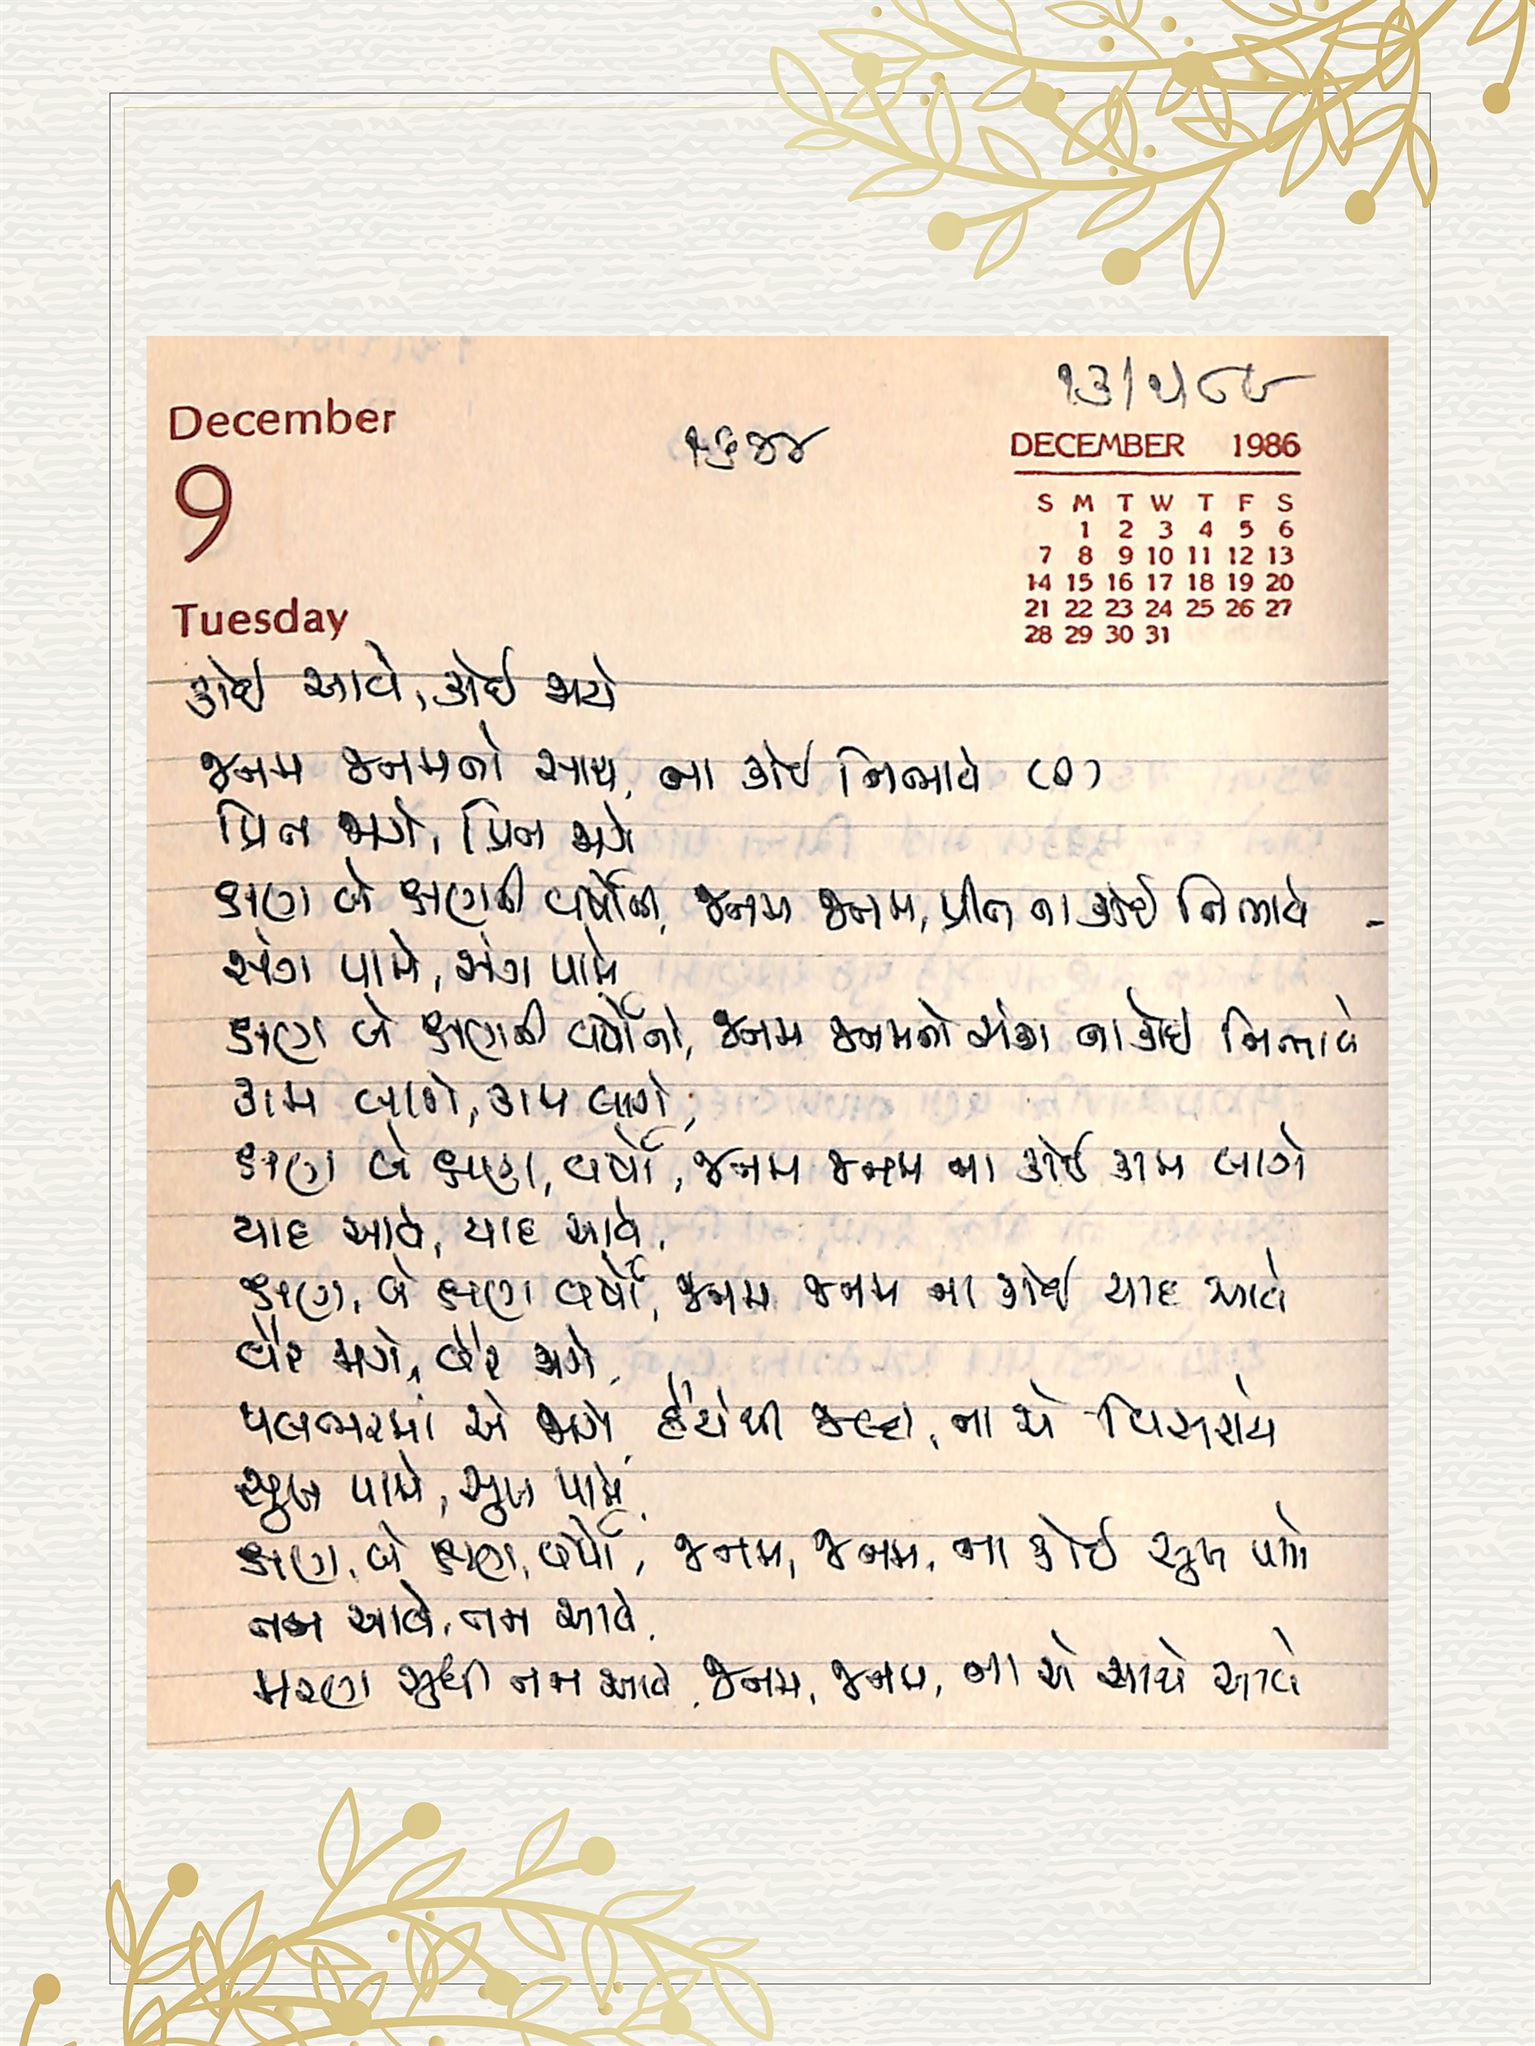 ૧૩/૫/૮૮
December
DECEMBER 1986
9
S M T W T F S
1 2 3 4 5 6
7 8 9 10 11 12 13
14 15 16 17 18 19 20
21 22 23 24 25 26 27
28 29 30 31
Tuesday
કોઈ આવે, કોઈ જાયે
જનમ જનમનો સાથ, ના કોઈ નિભાવે (૨)
પ્રિત જાગે, પ્રિત જાગે
ક્ષણ બે ક્ષણની વર્ષોની, જનમ જનમ, પ્રીત ના કોઈ નિભાવે -
સંગ પામે, સંગ પામે
ક્ષણ બે ક્ષણની વર્ષોનો, જનમ જનમનો સંગ ના કોઈ નિભાવે
કામ લાગે, કામ લાગે,
ક્ષણ બે ક્ષણ, વર્ષો, જનમ જનમ ના કોઈ કામ લાગે
યાદ આવે, યાદ આવે,
ક્ષણ, બે ક્ષણ વર્ષો, જનમ જનમ ના કોઈ યાદ આવે
વૈર જાગે, વૈર જાગે,
પલભરમાં એ જાગે, હૈયેથી જલ્દી, ના એ વિસરાયે
સુખ પામે, સુખ પામે,
ક્ષણ, બે ક્ષણ, વર્ષો, જનમ, જનમ, ના કોઈ સુખ પામે
તન આવે, તન આવે,
મરણ સુધી તન આવે, જનમ, જનમ, ના એ સાથે આવે